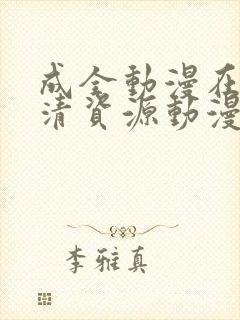 成全動漫在
清資源動漫
李雅真